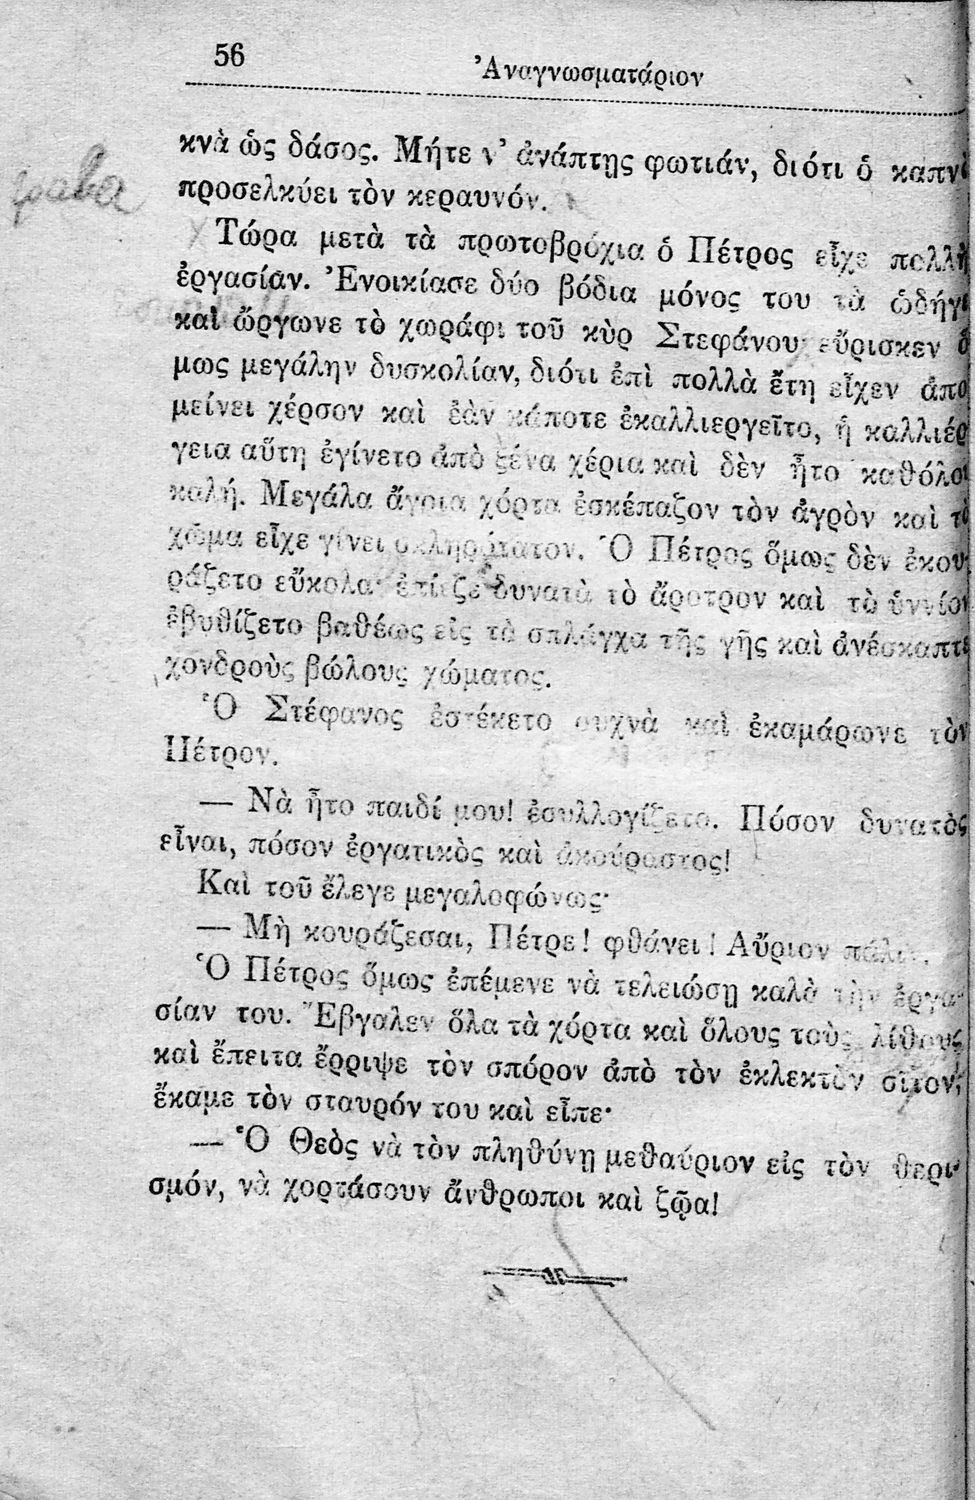 56
Ἀναγνωσματάριον
κνὰ ὡς δάσος. Μήτε ν' ἀνάπτῃς φωτιάν, διότι ὁ καπνὸ
προσελκύει τὸν κεραυνόν.
Τώρα μετὰ τὰ πρωτοβρόχια ὁ Πέτρος εἶχε πολλὴ
ἐργασίαν. Ἐνοικίασε δύο βόδια μόνος του τὰ ὡδήγε
καὶ ὤργωνε τὸ χωράφι τοῦ κὺρ Στεφάνου· εὕρισκεν ὅ
μως μεγάλην δυσκολίαν, διότι ἐπὶ πολλὰ ἔτη εἶχεν ἀπο
μείνει χέρσον καὶ ἐὰν κάποτε ἐκαλλιεργεῖτο, ἡ καλλιέρ
γεια αὕτη ἐγίνετο ἀπὸ ξένα χέρια καὶ δὲν ἦτο καθόλου
καλή. Μεγάλα ἄγρια χόρτα ἐσκέπαζον τὸν ἀγρὸν καὶ τὸ
χῶμα εἶχε γίνει σκληρότατον. Ὁ Πέτρος ὅμως δὲν ἐκου
ράζετο εὔκολα· ἐπίεζε δυνατὰ τὸ ἄροτρον καὶ τὸ ὑννίον
ἐβυθίζετο βαθέως εἰς τὰ σπλάγχα τῆς γῆς καὶ ἀνέσκαπτε
χονδροὺς βώλους χώματος.
Ὁ Στέφανος ἐστέκετο συχνὰ καὶ ἐκαμάρωνε τὸν
Πέτρον.
— Νὰ ἦτο παιδί μου! ἐσυλλογίζετο. Πόσον δυνατὸς
εἶναι, πόσον ἐργατικὸς καὶ ἀκούραστος!
Καὶ τοῦ ἔλεγε μεγαλοφώνως·
— Μὴ κουράζεσαι, Πέτρε! φθάνει! Αὔριον πάλιν.
Ὁ Πέτρος ὅμως ἐπέμενε νὰ τελειώσῃ καλὰ τὴν ἐργα-
σίαν του. Ἔβγαλεν ὅλα τὰ χόρτα καὶ ὅλους τοὺς λίθους
καὶ ἔπειτα ἔρριψε τὸν σπόρον ἀπὸ τὸν ἐκλεκτὸν σῖτον,
ἔκαμε τὸν σταυρόν του καὶ εἶπε·
— Ὁ Θεὸς νὰ τὸν πληθύνῃ μεθαύριον εἰς τὸν θερι-
σμόν, νὰ χορτάσουν ἄνθρωποι καὶ ζῷα!